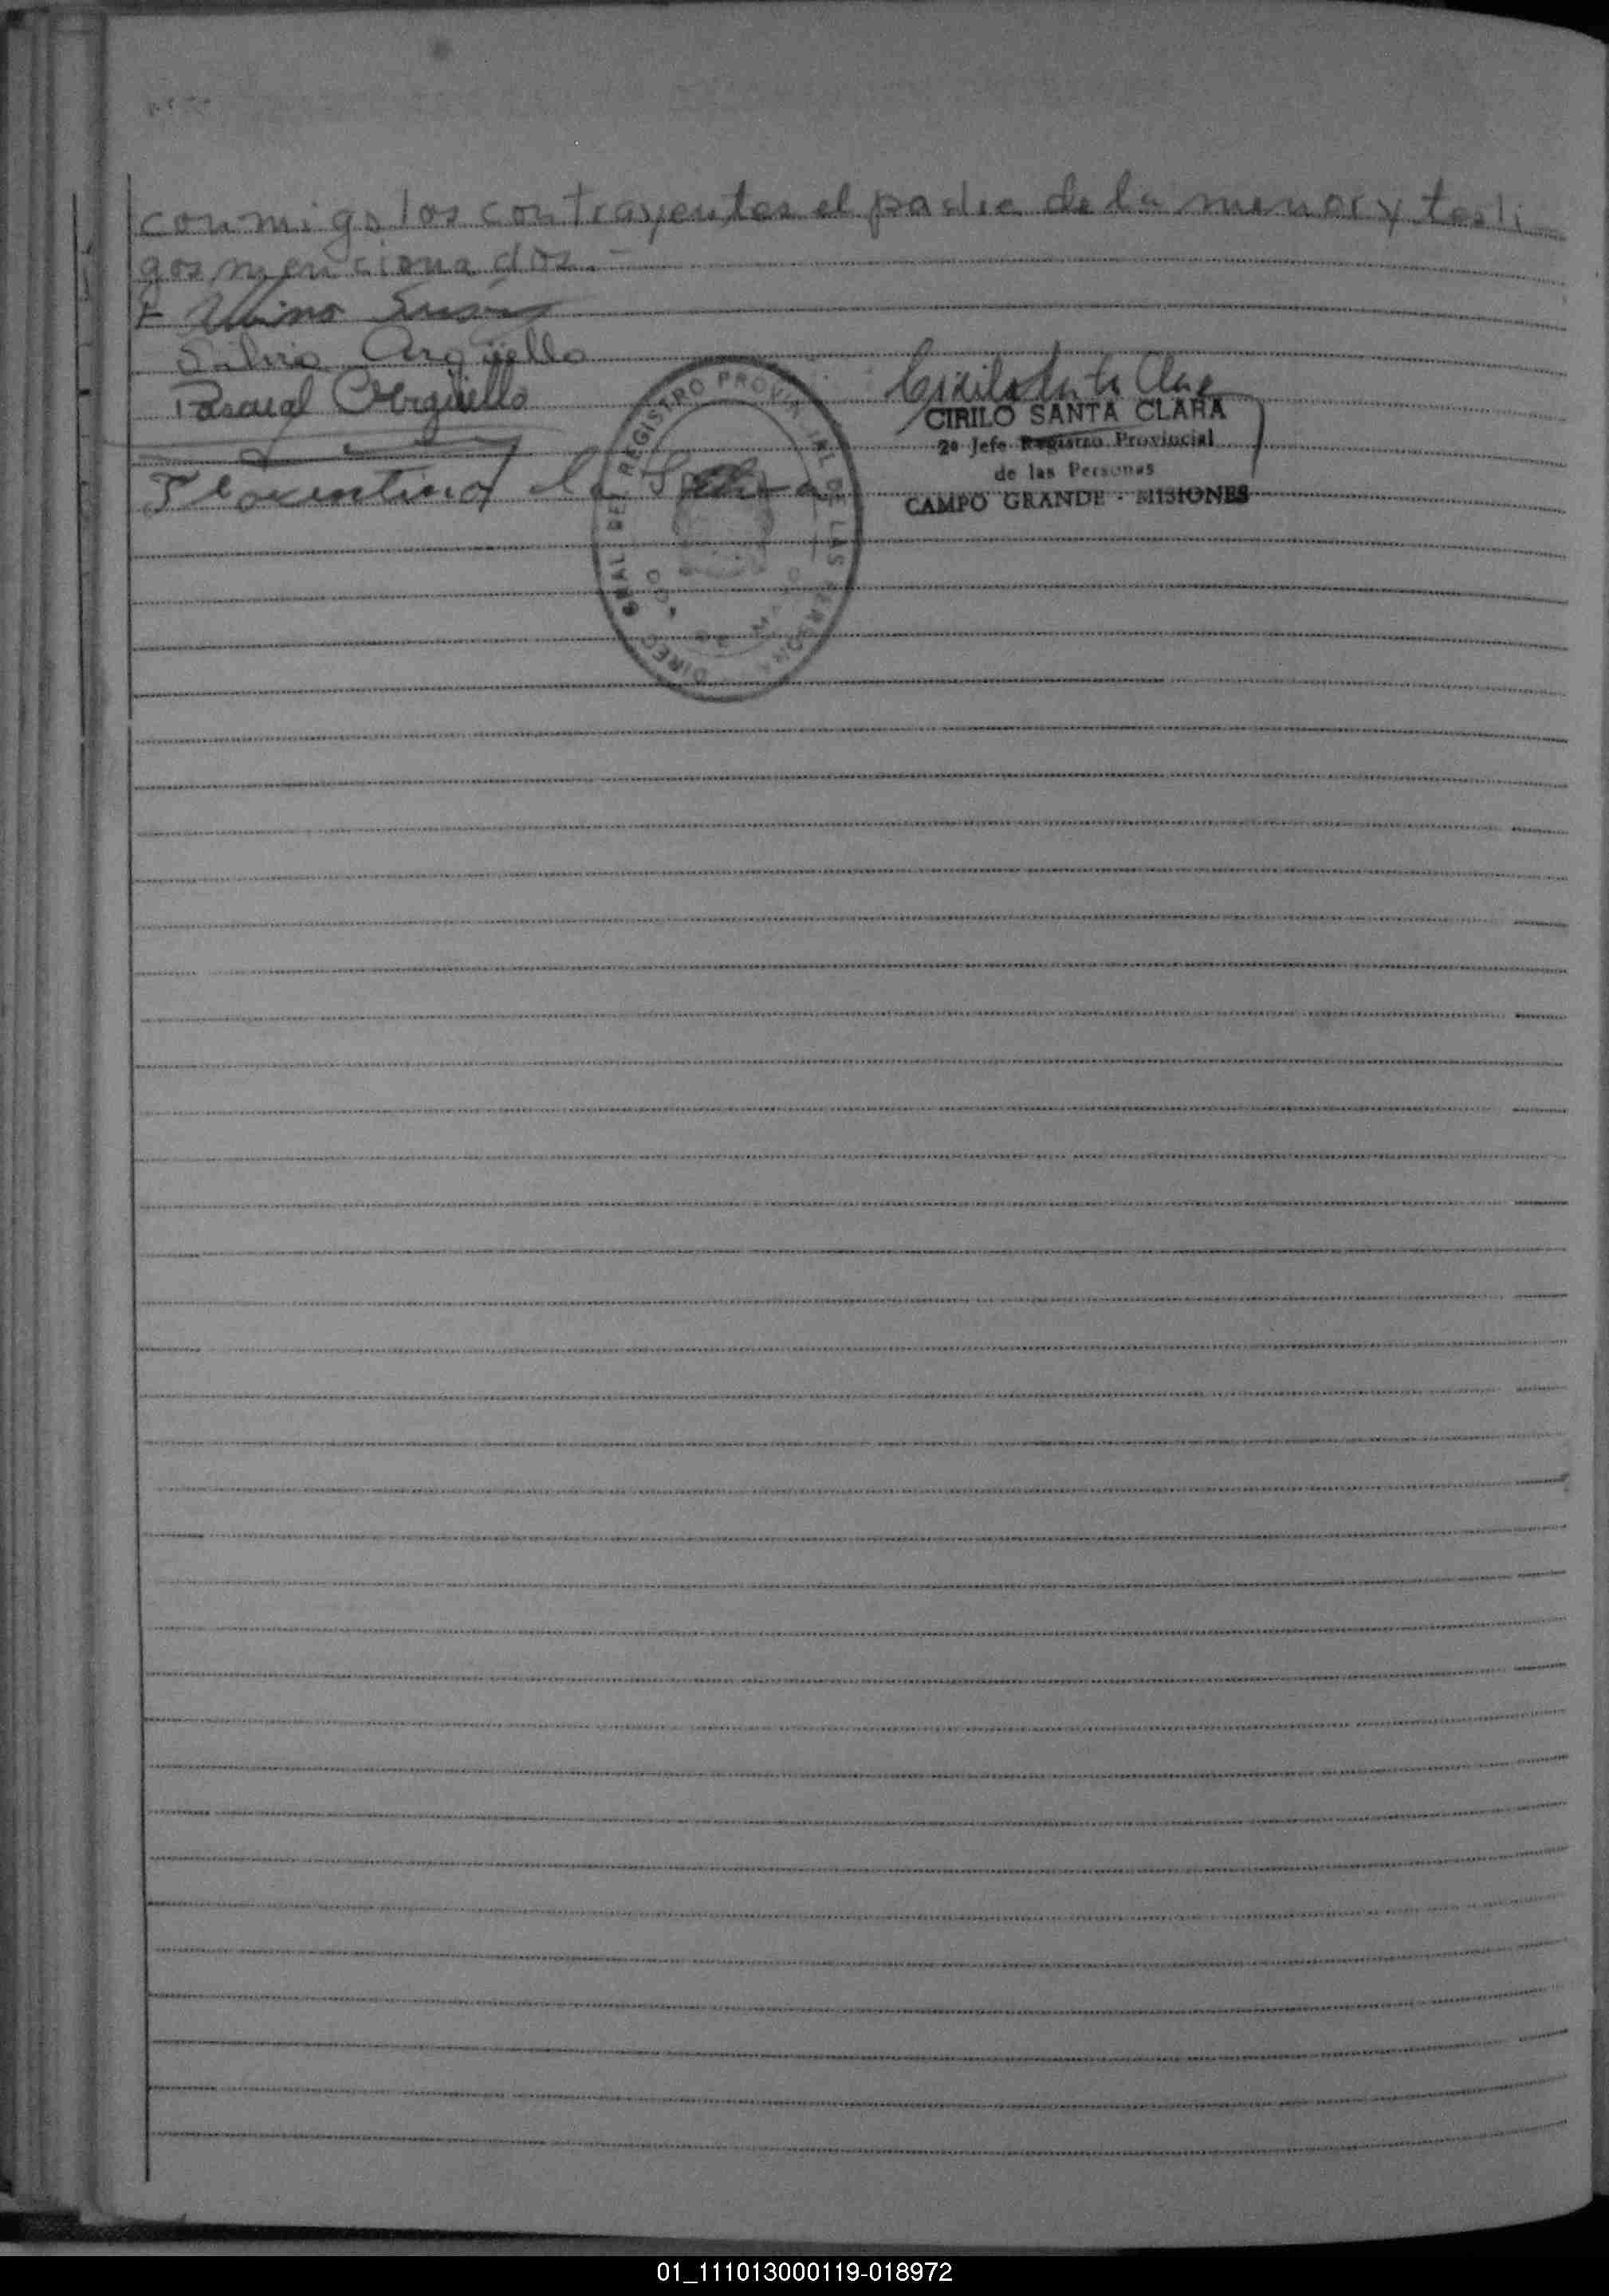 conmigo los contrayentes el padre de la menor y testi
gos mencionados.-
Albino
Silvio Argüello
Pascual Argüello
Florentina da Silva
Cirilo Santa Clara
CIRILO SANTA CLARA
2º Jefe Registro Provincial
de las Personas
CAMPO GRANDE - MISIONES
DIREC GRAL DEL REGISTRO PROVINCIAL DE LAS PERSONAS
01_111013000119-018972